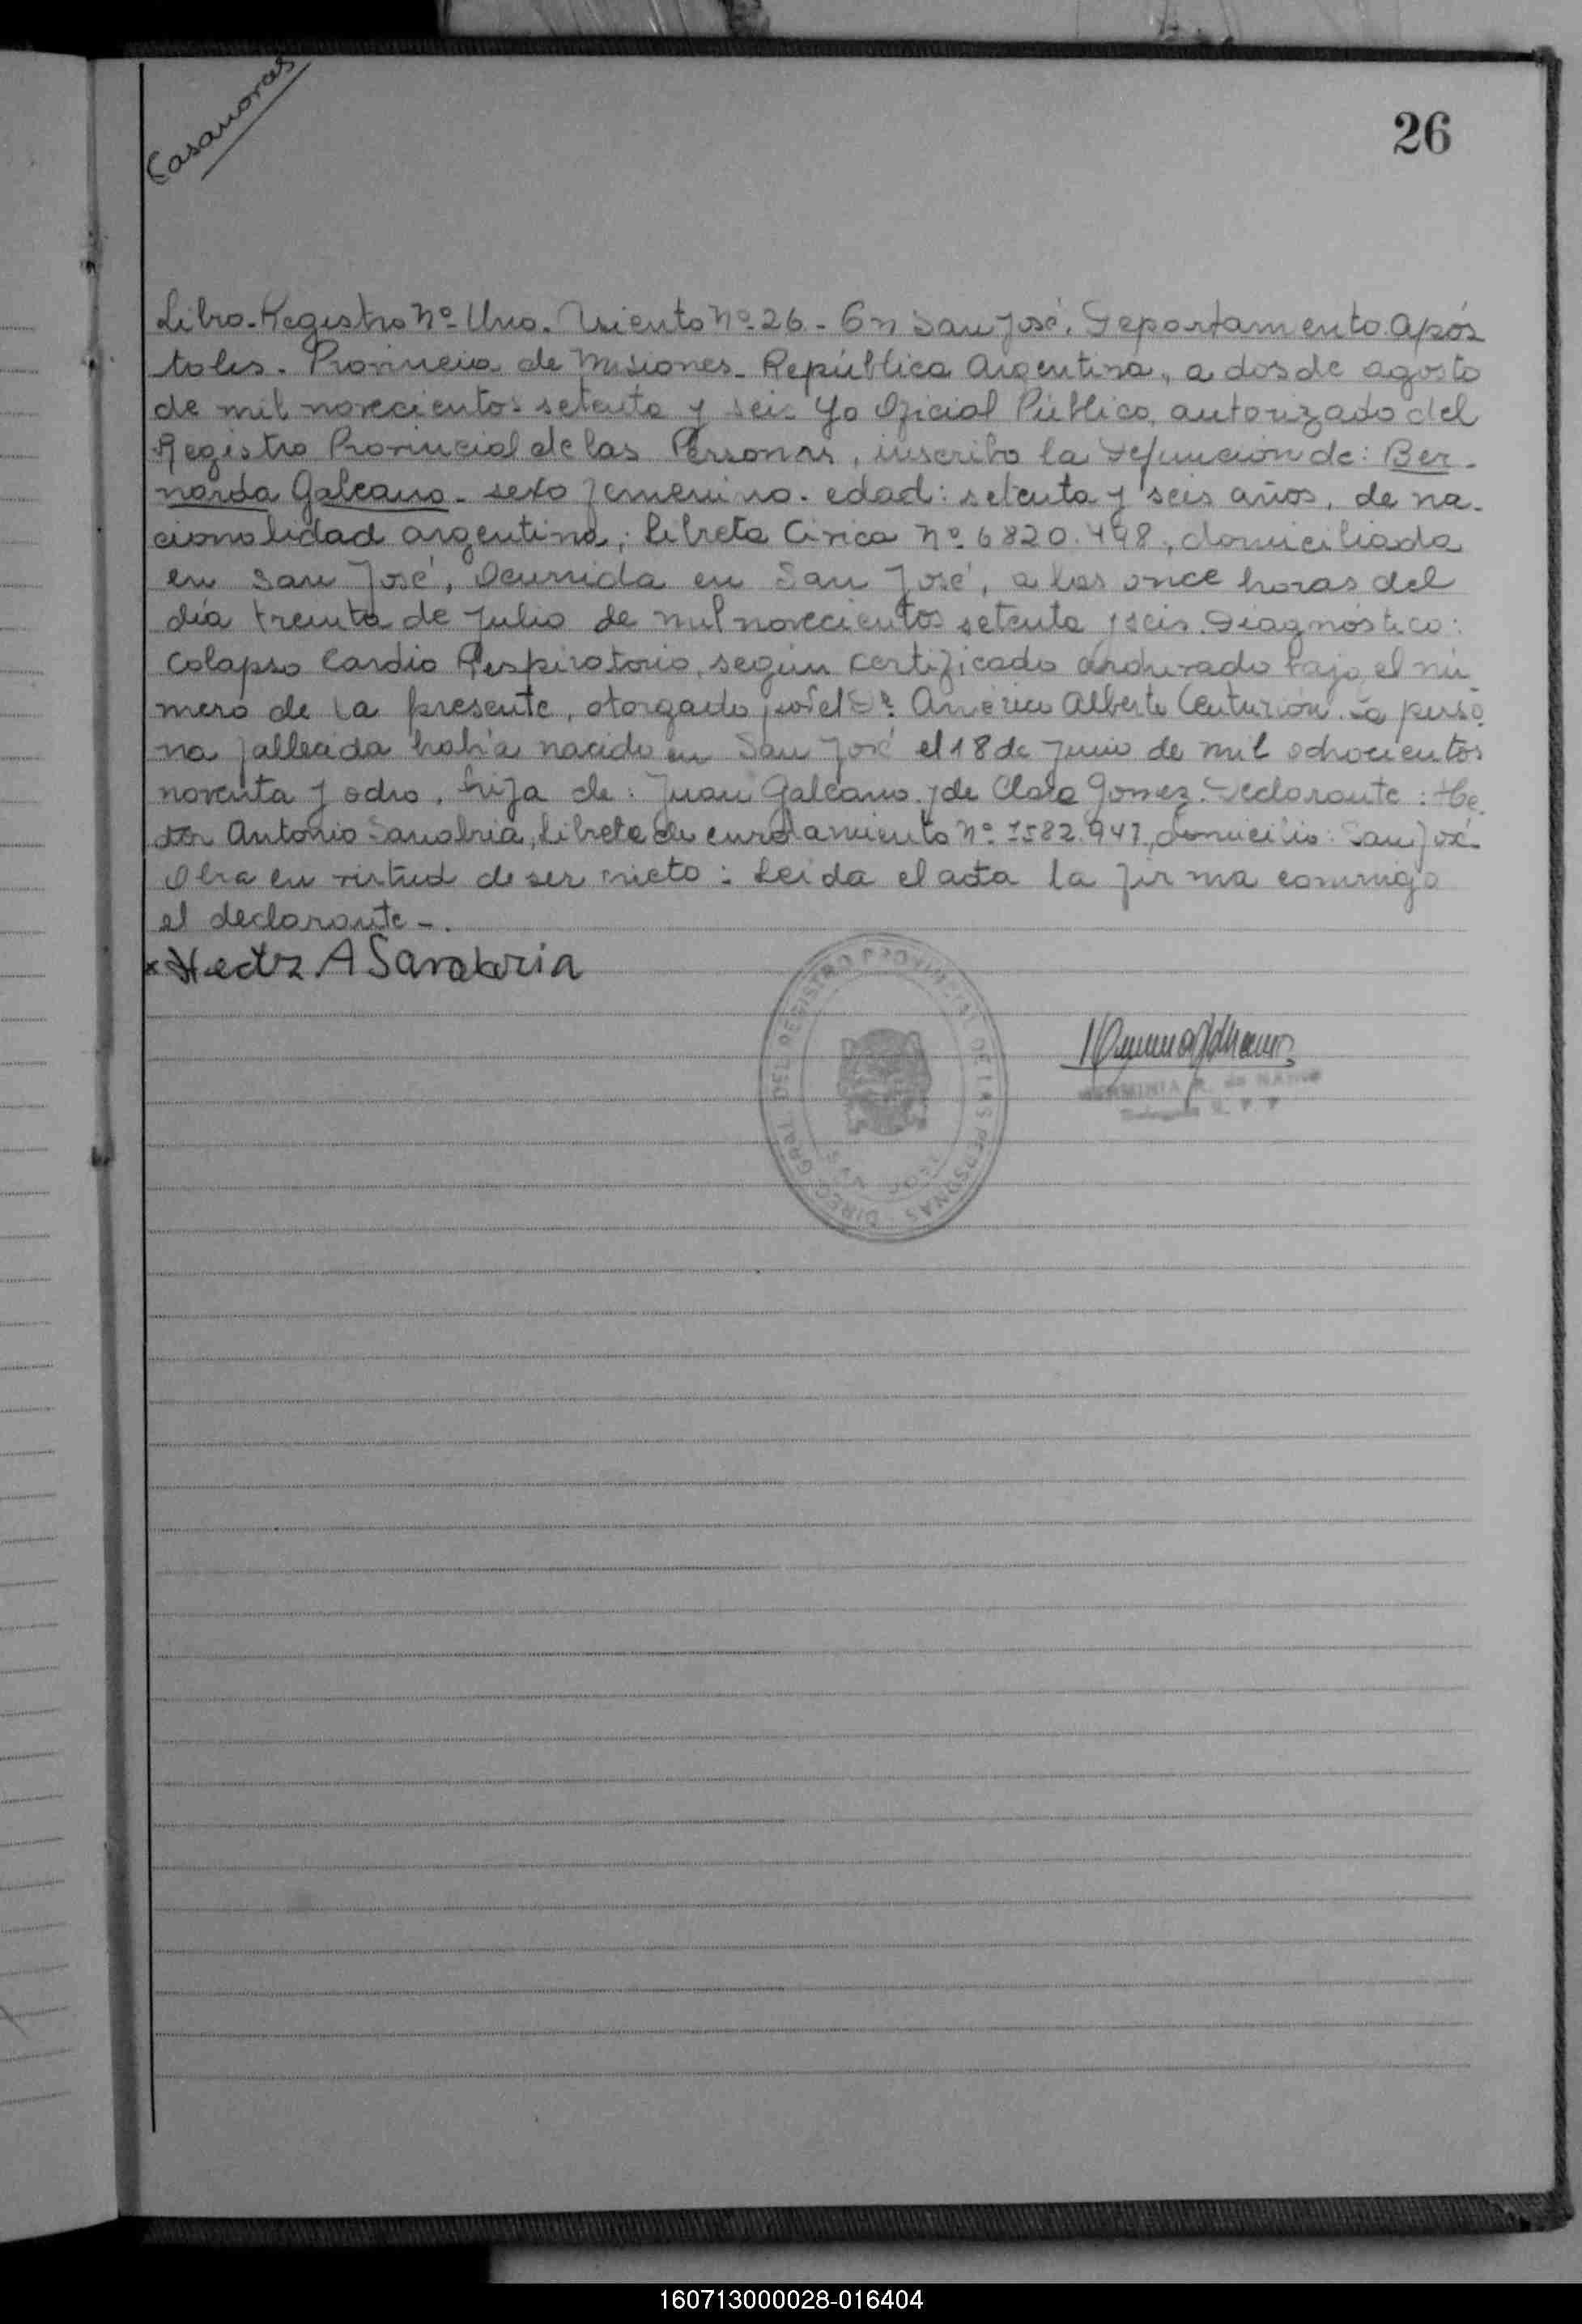 Casanovas
26
Libro-Registro Nº Uno. Asiento Nº 26 - En San José. Departamento Após
toles. Provincia de Misiones. República Argentina, a dos de agosto
de mil novecientos setenta y seis Yo Oficial Público, autorizado del
Registro Provincial de las Personas, inscribo la Defunción de: Ber-
narda Galeano - sexo femenino. edad: setenta y seis años, de na-
cionalidad argentina, Libreta Cívica Nº 6820.498, domiciliada
en San José, Ocurrida en San José, a las once horas del
día treinta de Julio de mil novecientos setenta y seis. Diagnóstico:
Colapso Cardio Respiratorio, según certificado archivado bajo el nú-
mero de la presente, otorgado por el Dr. Américo Alberto Centurión. La perso-
na fallecida había nacido en San José el 18 de Junio de mil ochocientos
noventa y ocho, hija de: Juan Galeano y de Clara Gomez. Declarante: Héc-
tor Antonio Sanabria, Libreta de enrolamiento Nº 7582.947, domicilio: San José.
Obra en virtud de ser nieto: Leída el acta la firma conmigo
el declarante -.
Hector A Sanabria
DIREC. GRAL. DEL REGISTRO PROVINCIAL DE LAS PERSONAS
SAN JOSE
HERMINIA
160713000028-016404